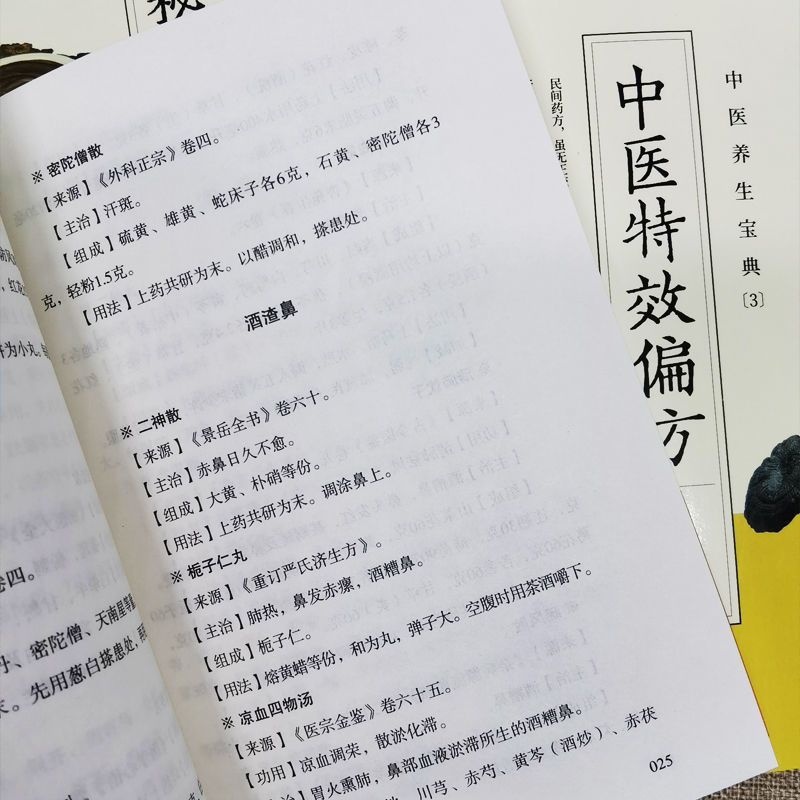 ※ 密陀僧散
【来源】《外科正宗》卷四。
【主治】汗斑。
【组成】硫黄、雄黄、蛇床子各6克，石黄、密陀僧各3
克，轻粉1.5克。
【用法】上药共研为末。以醋调和，搽患处。
酒渣鼻
※ 二神散
【来源】《景岳全书》卷六十。
【主治】赤鼻日久不愈。
【组成】大黄、朴硝等份。
【用法】上药共研为末。调涂鼻上。
※ 栀子仁丸
【来源】《重订严氏济生方》。
【主治】肺热，鼻发赤瘰，酒糟鼻。
【组成】栀子仁。
【用法】熔黄蜡等份，和为丸，弹子大。空腹时用茶酒嚼下。
※ 凉血四物汤
【来源】《医宗金鉴》卷六十五。
【功用】凉血调荣，散淤化滞。
治】胃火熏肺，鼻部血液淤滞所生的酒糟鼻。
川芎、赤芍、黄芩（酒炒）、赤茯
025
开为小丸。
卷四。
丹、密陀僧、天南星等
末。先用葱白搽患处，
中医特效偏方
中医养生宝典〔3〕
民间药方，虽无